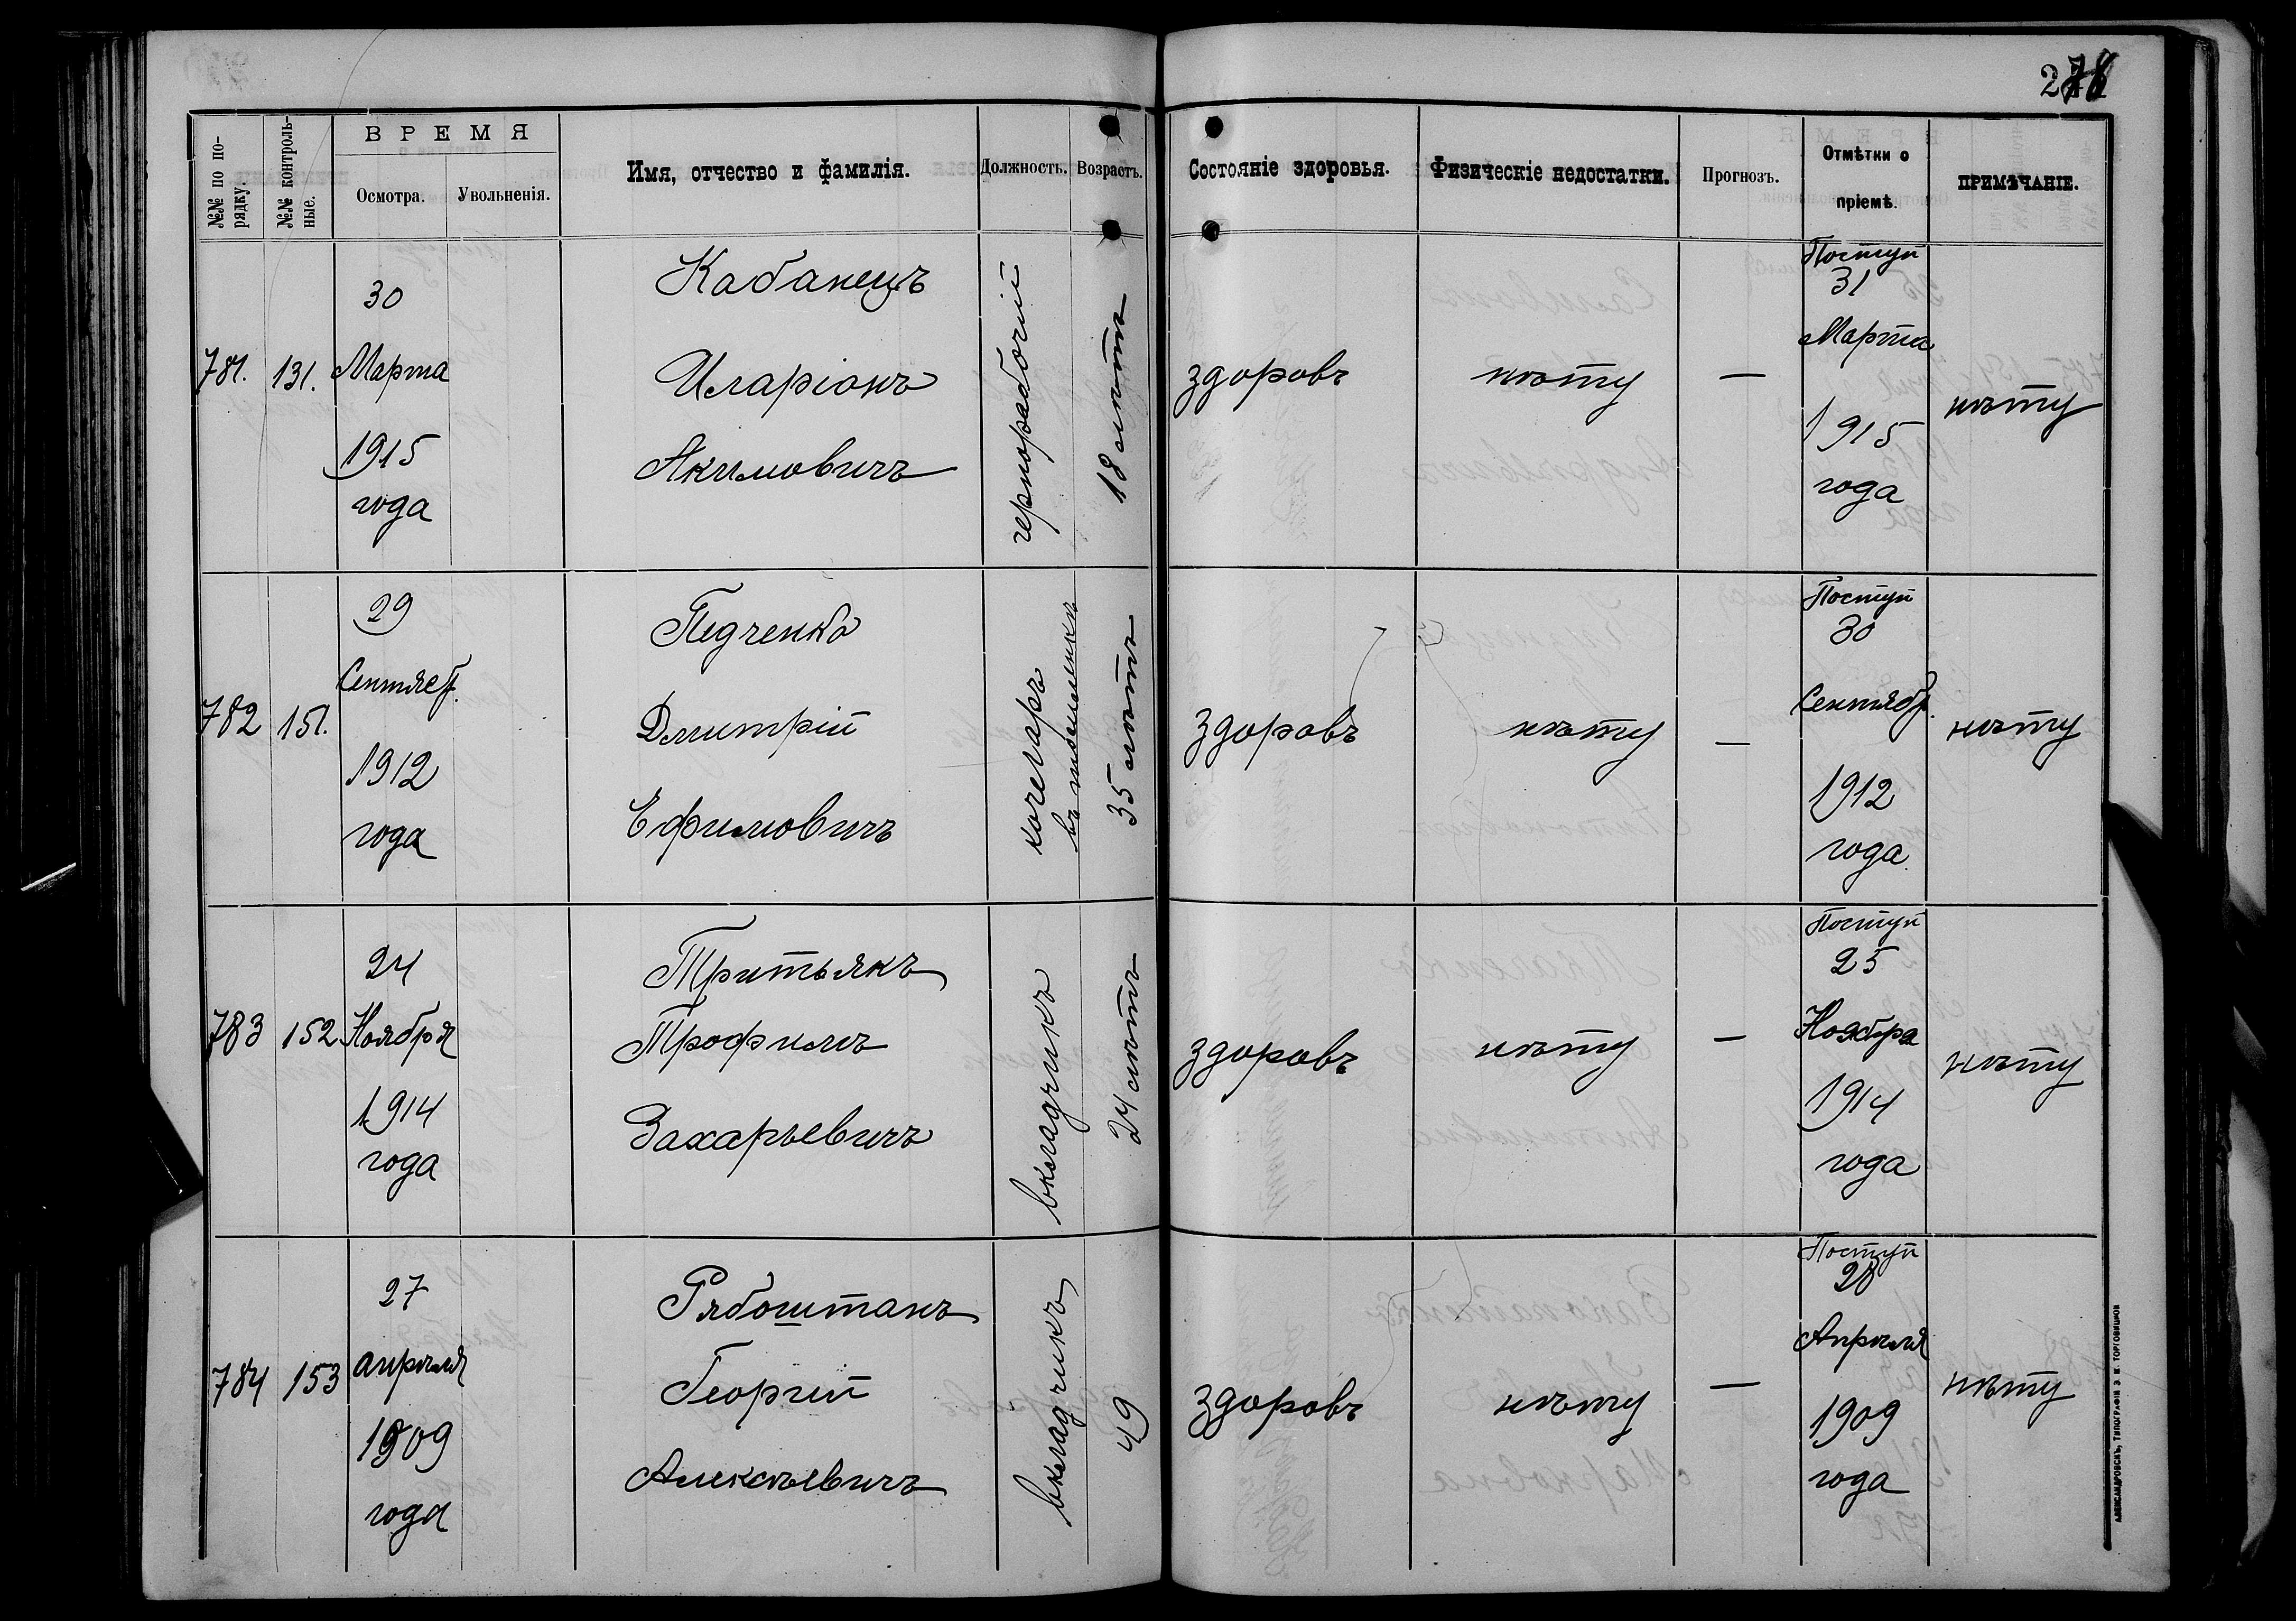 278
№№ по по-
рядку.
№№ контроль-
ные.
ВРЕМЯ
Осмотра.
Увольненія.
Имя, отчество и фамилія.
Должность.
Возрастъ.
Состояніе здоровья.
Физическіе недостатки.
Прогнозъ.
Отмѣтки о
пріемѣ.
ПРИМѢЧАНІЕ.
781.
131.
30
Марта
1915
года
Кабанецъ
Иларіонъ
Акимовичъ
чернорабочій
18 лѣтъ
здоровъ
нѣту
—
Поступ
31
Марта
1915
года
нѣту
782
151.
29
Сентябр.
1912
года
Педченко
Дмитрій
Ефимовичъ
кочегаръ
въ
35 лѣтъ
здоровъ
нѣту
—
Поступ
30
Сентябр.
1912
года.
нѣту
783
152
24
Ноября
1914
года
Тритьякъ
Трофимъ
Захарьевичъ
вкладчикъ
24 лѣтъ
здоровъ
нѣту
—
Поступ
25
Ноября
1914
года
нѣту
784
153
27
апрѣля
1909
года
Рябоштанъ
Георгій
Алексѣевичъ
вкладчикъ
49
здоровъ
нѣту
—
Поступ
28
Апрѣля
1909
года
нѣту
АЛЕКСАНДРОВСКЪ, ТИПОГРАФІЯ Э. И. ТОРГОВИЦКОВ